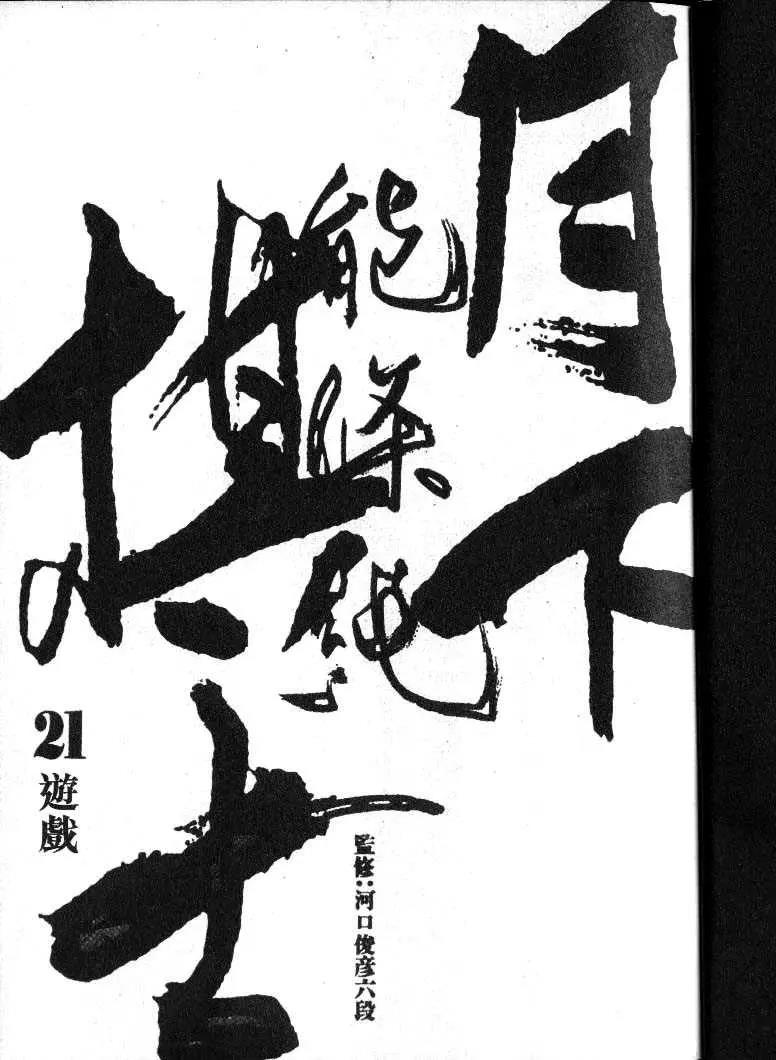 月下
棋士
能條純一
21
遊戲
監修:河口俊彦六段